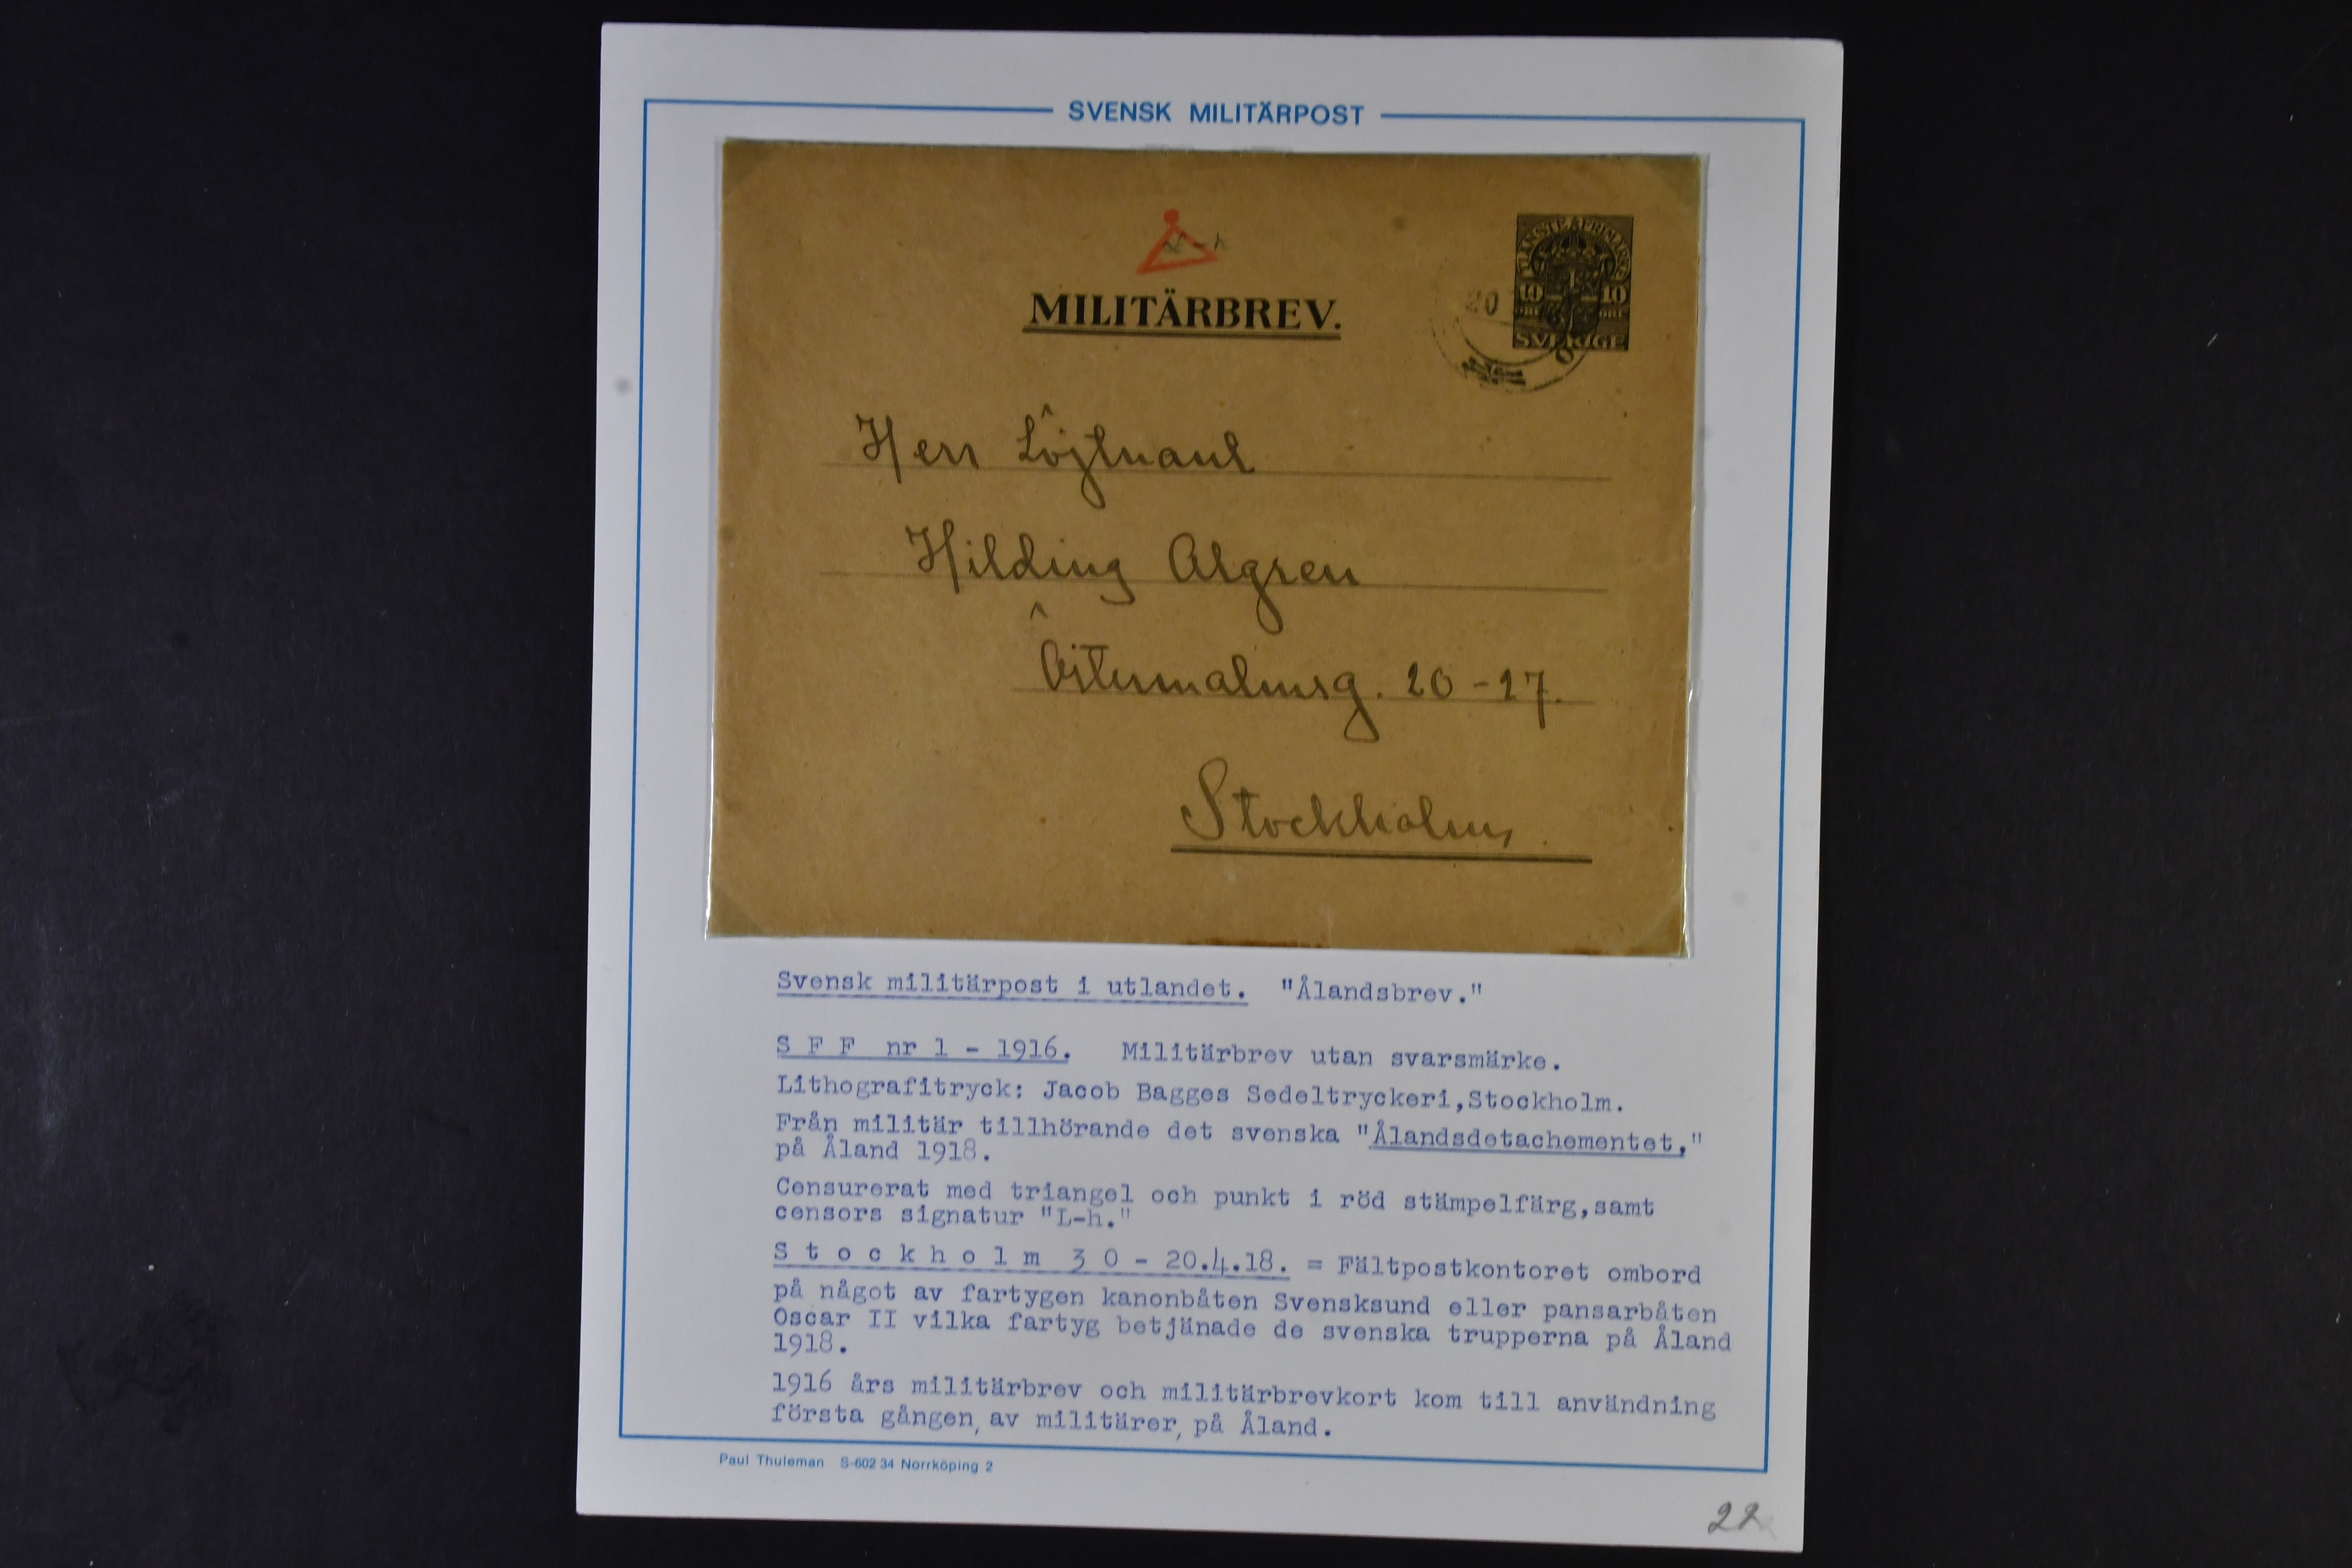 SVENSK MILITÄRPOST
L-h
MILITÄRBREV.
TJÄNSTEFRIMÄRKE
10 10
ÖRE ÖRE
SVERIGE
20
Herr Löjtnant
Hilding Algren
Östermalmsg. 20 - 27.
Stockholm.
Svensk militärpost i utlandet. "Ålandsbrev."
S F F nr 1 - 1916. Militärbrev utan svarsmärke.
Lithografitryck: Jacob Bagges Sedeltryckeri,Stockholm.
Från militär tillhörande det svenska "Ålandsdetachementet,"
på Åland 1918.
Censurerat med triangel och punkt i röd stämpelfärg,samt
censors signatur "L-h."
S t o c k h o l m 3 0 - 20.4.18. = Fältpostkontoret ombord
på något av fartygen kanonbåten Svensksund eller pansarbåten
Oscar II vilka fartyg betjänade de svenska trupperna på Åland
1918.
1916 års militärbrev och militärbrevkort kom till användning
första gången, av militärer, på Åland.
Paul Thuleman S-602 34 Norrköping 2
22